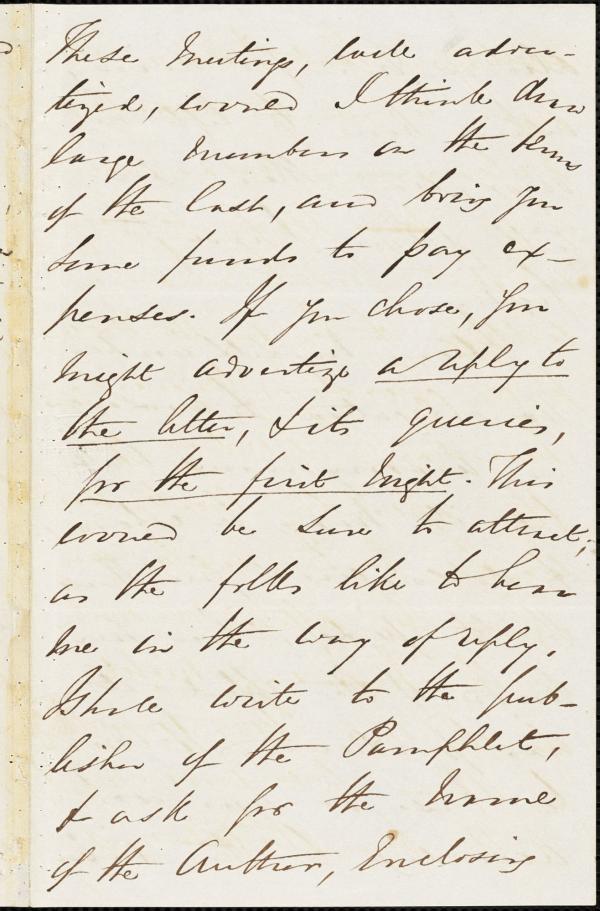 These meetings, well adver-
tized, would I think draw
large numbers on the terms
of the last, and bring you
some funds to pay ex-
penses. If you chose, you
might advertize a reply to
the letter, & its queries,
for the first night. This
would be sure to attract;
as the folks like to hear
me in the way of reply.
I shall write to the pub-
lisher of the Pamphlet,
& ask for the name
of the Author, enclosing